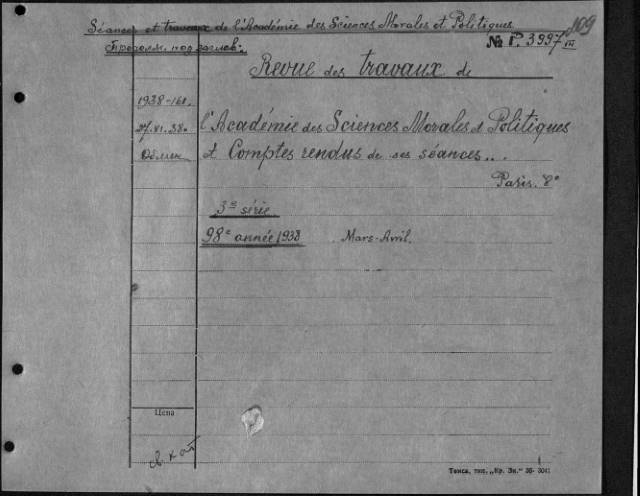 Séances et travaux de l'Académie des Sciences Morales et Politiques
109
Продолж. под заглав:
№ Г. 3997 III
Revue des travaux de
1938-161.
27.VI.38.
l'Académie des Sciences Morales et Politiques
Обмен
et Comptes rendus de ses séances...
Paris. 8°
3me série.
98e année 1938 Mars-Avril.
Цена
Томск, тип. „Кр. Зн." 38- 3041